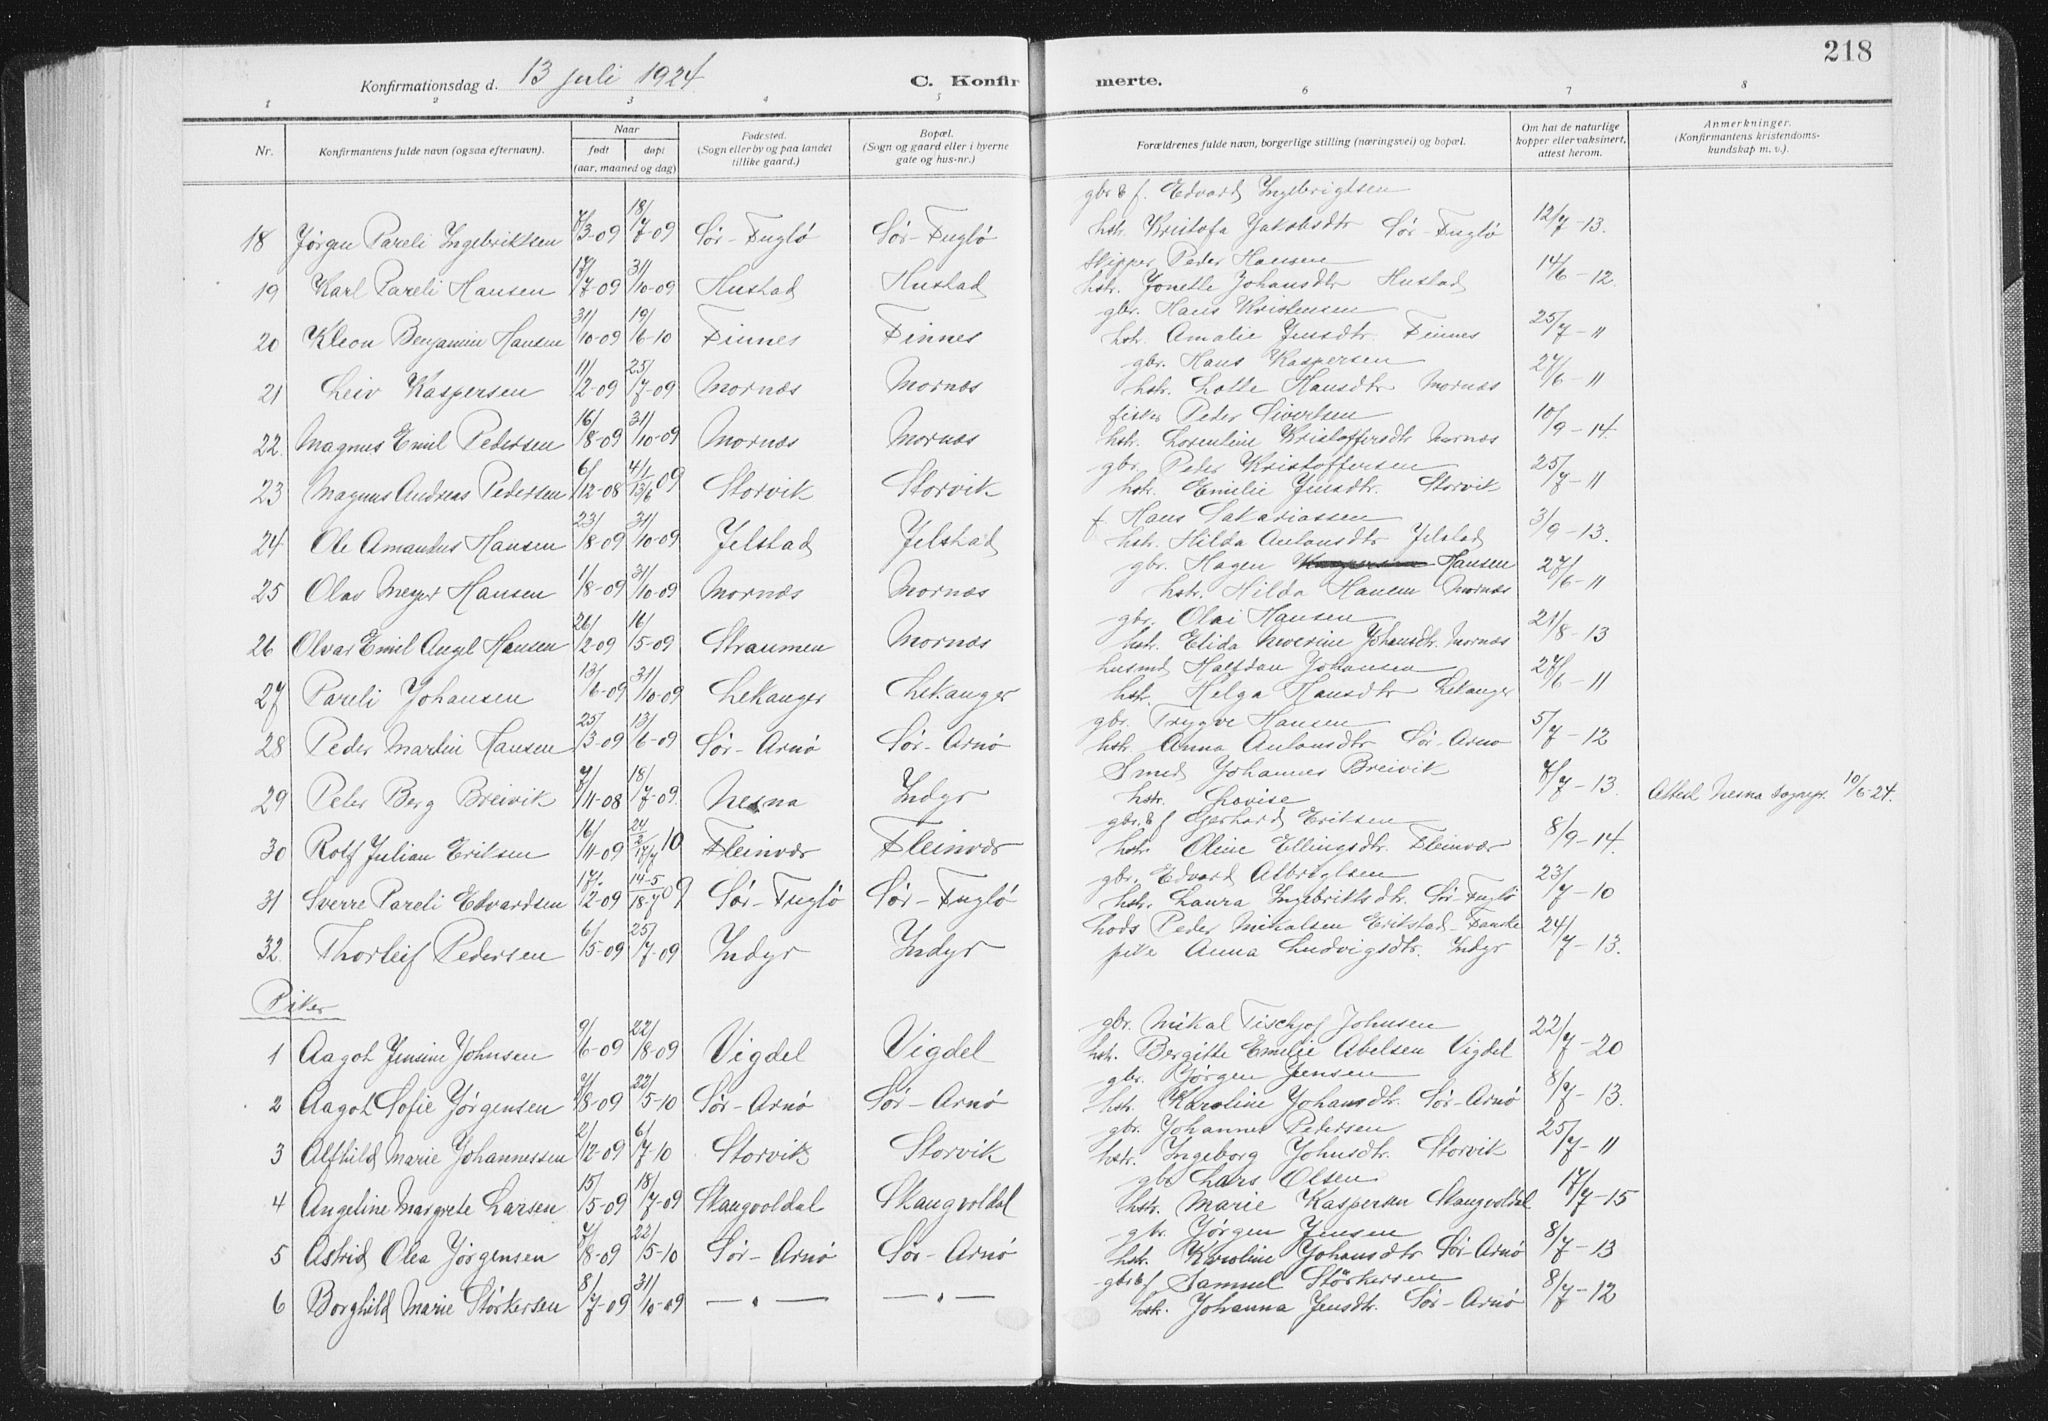 218
Konfirmationsdag d. 13 juli 1924 C. Konfirmerte.
1 2 3 4 5 6 7 8
Nr. Konfirmantens fulde navn (ogsaa efternavn). Naar født døpt (aar, maaned og dag) Fødested. (Sogn eller by og paa landet tillike gaard.) Bopæl. (Sogn og gaard eller i byerne gate og hus-nr.) Forældrenes fulde navn, borgerlige stilling (næringsvei) og bopæl. Om hat de naturlige kopper eller vaksinert, attest herom. Anmerkninger. (Konfirmantens kristendomskundskap m. v.).
gbr & f. Edvard Ingebrigtsen
18 Jørgen Pareli Ingebriktsen 7/3-09 18/7-09 Sør-Fuglø Sør-Fuglø hstr. Kristofa Jakobsdtr Sør-Fuglø 12/7-13.
Skipper Peder Hansen
19 Karl Pareli Hansen 17/7-09 31/10-09 Hustad Hustad hstr. Jonette Johansdtr Hustad 14/6-12
gbr. Hans Kristensen
20 Kleon Benjamin Hansen 31/10-09 19/6-10 Finnes Finnes hstr. Amalie Jensdtr. Finnes 25/7-11
gbr. Hans Kaspersen
21 Leiv Kaspersen 11/2-09 25/7-09 Mornæs Mornæs hstr. Lotte Hansdtr Mornæs 27/6-11
fisker Peder Sivertsen
22. Magnus Emil Pedersen 16/8-09 31/10-09 Mornæs Mornæs hstr. Lorentine Kristoffersdtr Mornæs 10/9-14.
gbr. Peder Kristoffersen
23 Magnus Andreas Pedersen 6/12-08 4/1 13/6 09 Storvik Storvik hstr. Emilie Jensdtr. Storvik 25/7-11
f. Hans Sakariassen
24 Ole Amandus Hansen 23/8-09 31/10-09 Jelstad Jelstad hstr. Hilda Antonsdtr Jelstad 3/9-13.
gbr. Hagen Hansen
25 Olav Meyer Hansen 1/8-09 31/10-09 Mornæs Mornæs hstr. Hilda Hansen Mornæs 27/6-11
gbr. Olai Hansen
26 Olvar Emil Angel Hansen 26/2-09 16/5-09 Straumen Mornæs hstr. Elida Neverine Johansdtr. Mornæs 21/8-13
husmd Halfdan Johansen
27 Pareli Johansen 13/6-09 31/10-09 Lekanger Lekanger hstr. Helga Hansdtr Lekanger 27/6-11
gbr. Trygve Hansen
28 Peder Martin Hansen 25/3-09 13/6-09 Sør-Arnø Sør-Arnø hstr. Anna Antonsdtr Sør-Arnø 5/7-12
Smed Johannes Breivik
29 Peter Berg Breivik 7/11-08 18/7-09. Nesna Indyr hstr. Lovise 8/7-13. Attest Nesna sognepr. 10/6-24.
gbr. & f Gerhard Eriksen
30 Rolf Julian Eriksen 16/11-09 24/2 17/7 10 Fleinvær Fleinvær hstr. Oline Ellingsdtr. Fleinvær 8/9-14.
gbr. Edvard Albrigtsen
31 Sverre Pareli Edvardsen 17/2-09 14-5 18-7 09 Sør-Fuglø Sør-Fuglø hstr. Laura Ingebriktsdtr. Sør-Fuglø 23/7-10
Peder Mikalsen Erikstad
32. Thorleif Pedersen 6/5-09 25/7-09 Indyr Indyr pike Anna Ludvigsdtr. Indyr 24/7-13.
Piker
gbr. Mikal Johnsen
1 Aagot Jensine Johnsen 9/6-09 22/8-09 Vigdel Vigdel hstr. Bergitte Emilie Abelsen Vigdel 22/7-20
gbr. Jørgen Jensen
2 Aagot Sofie Jørgensen 7/8-09 22/5-10 Sør-Arnø Sør-Arnø hstr. Karoline Johansdtr. Sør-Arnø 8/7-13.
gbr. Johannes Pedersen
3 Alfhild Marie Johannessen 2/12-09 6/7-10 Storvik Storvik hstr. Ingeborg Johnsdtr. Storvik 25/7-11
gbr Lars Olsen
4 Angeline Margrete Larsen 15/5-09 18/7-09 Skaugvoldal Skaugvoldal hstr. Marie Kaspersen Skaugvoldal 17/7-15
gbr Jørgen Jensen
5 Astrid Olea Jørgensen 7/8-09 22/5-10 Sør-Arnø Sør-Arnø hstr. Karoline Johansdtr Sør-Arnø 8/7-13
gbr & f Samuel Størkersen
6 Borghild Marie Størkersen 8/7-09 31/10-09 — " — — " — hstr. Johanna Jensdtr. Sør-Arnø 8/7-12